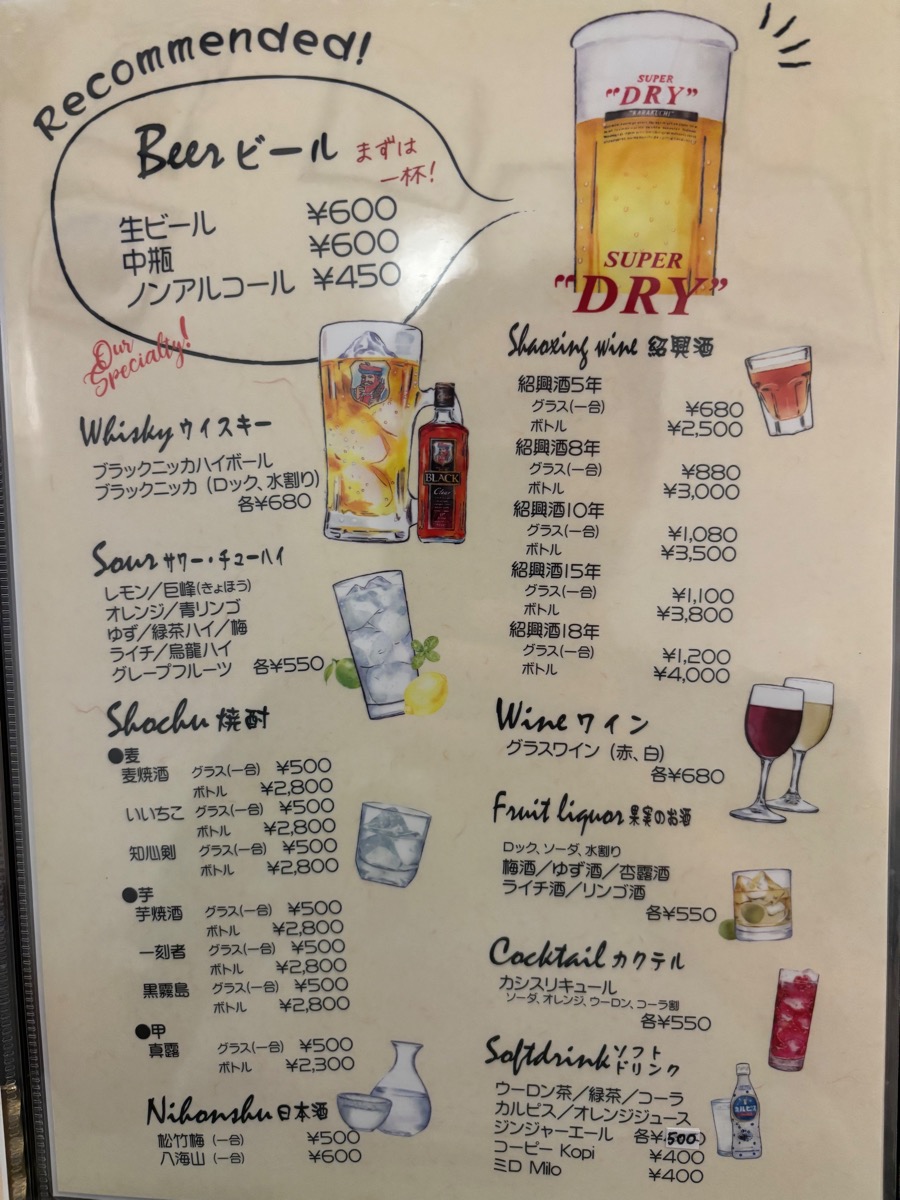 Recommended!
Beer ビール まずは
一杯!
生ビール ¥600
中瓶 ¥600
ノンアルコール ¥450
SUPER
"DRY"
"KARAKUCHI"
SUPER
"DRY"
Our
Specialty!
Whisky ウイスキー
ブラックニッカハイボール
ブラックニッカ (ロック、水割り)
各¥680
BLACK
Clear
Sour サワー・チューハイ
レモン/巨峰(きょほう)
オレンジ/青リンゴ
ゆず/緑茶ハイ/梅
ライチ/烏龍ハイ
グレープフルーツ 各¥550
Shochu 焼酎
●麦
麦焼酒 グラス(一合) ¥500
ボトル ¥2,800
いいちこ グラス(一合) ¥500
ボトル ¥2,800
知心剣 グラス(一合) ¥500
ボトル ¥2,800
●芋
芋焼酒 グラス(一合) ¥500
ボトル ¥2,800
一刻者 グラス(一合) ¥500
ボトル ¥2,800
黒霧島 グラス(一合) ¥500
ボトル ¥2,800
●甲
真露 グラス(一合) ¥500
ボトル ¥2,300
Nihonshu 日本酒
松竹梅 (一合) ¥500
八海山 (一合) ¥600
Shaoxing wine 紹興酒
紹興酒5年
グラス(一合) ¥680
ボトル ¥2,500
紹興酒8年
グラス(一合) ¥880
ボトル ¥3,000
紹興酒10年
グラス(一合) ¥1,080
ボトル ¥3,500
紹興酒15年
グラス(一合) ¥1,100
ボトル ¥3,800
紹興酒18年
グラス(一合) ¥1,200
ボトル ¥4,000
Wine ワイン
グラスワイン (赤、白)
各¥680
Fruit liquor 果実のお酒
ロック、ソーダ、水割り
梅酒/ゆず酒/杏露酒
ライチ酒/リンゴ酒
各¥550
Cocktail カクテル
カシスリキュール
ソーダ、オレンジ、ウーロン、コーラ割
各¥550
Softdrink ソフト
ドリンク
ウーロン茶/緑茶/コーラ
カルピス/オレンジジュース
ジンジャーエール 各¥500
コーピー Kopi ¥400
ミロ Milo ¥400
カルピス